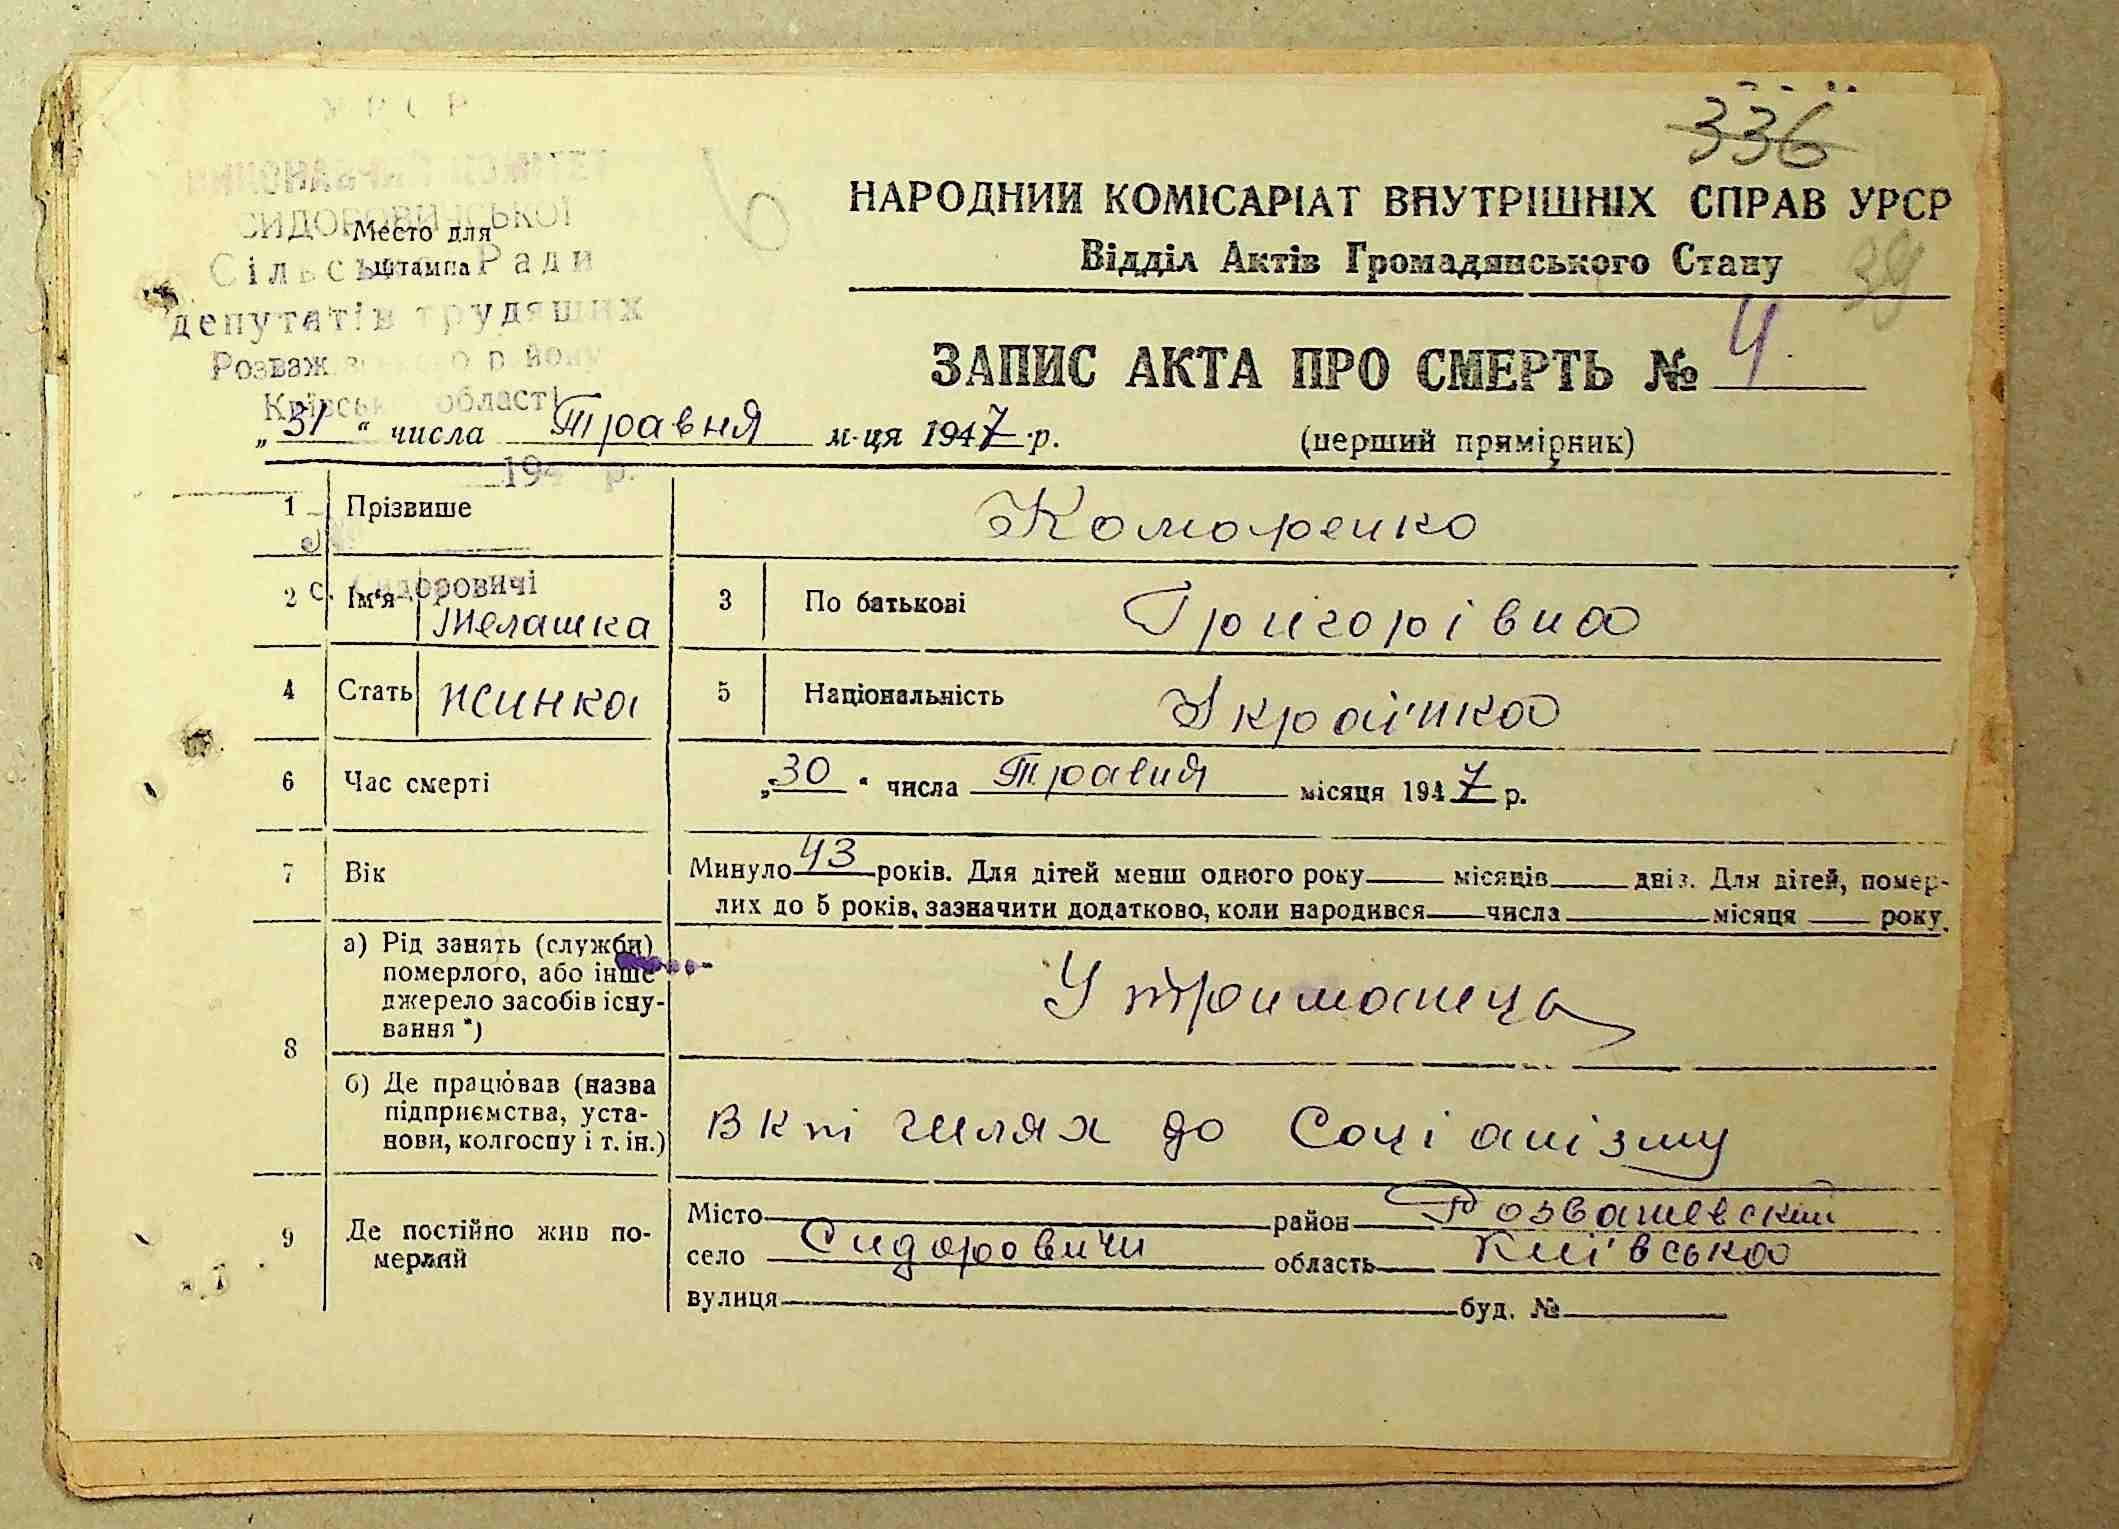 У Р С Р
336
НАРОДНИЙ КОМІСАРІАТ ВНУТРІШНІХ СПРАВ УРСР
Відділ Актів Громадянського Стану
39
СИДОРОВИЧСЬКОЇ
Место для
штампа
Сільської Ради
депутатів трудящих
Розваж району
Київськ області
ЗАПИС АКТА ПРО СМЕРТЬ № 4
„31“ числа Травня м-ця 1947 р. (перший примірник)
194 р.
1 Прізвище Комаренко
с. Сидоровичі
2 Ім'я Мелашка 3 По батькові Григорівна
4 Стать жинка 5 Національність Українка
6 Час смерті „30“ числа Травня місяця 1947 р.
7 Вік Минуло 43 років. Для дітей менш одного року місяців днів. Для дітей, помер-
лих до 5 років, зазначити додатково, коли народився числа місяця року.
8 а) Рід занять (служби)
померлого, або інше
джерело засобів існу-
вання *)
Утриманець
б) Де працював (назва
підприємства, уста-
нови, колгоспу і т. ін.)
В кті шлях до Соціанізму
9 Де постійно жив по-
мерлий
Місто район Розважевский
село Сидоровичи область Київська
вулиця буд. №